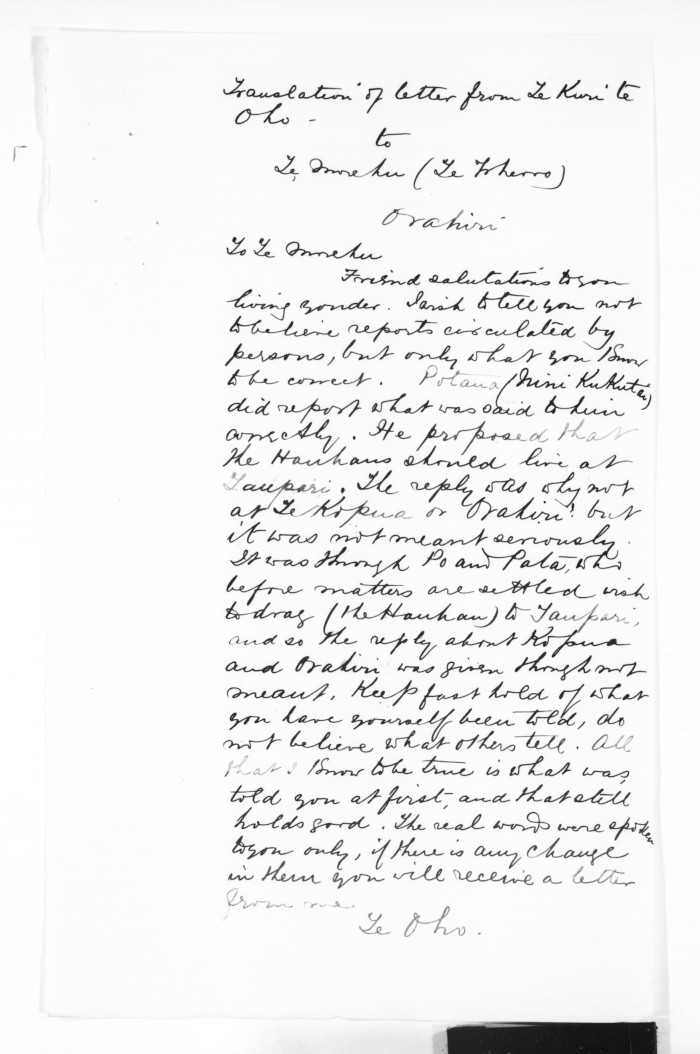 Translation of letter from Te Kuri te
Oho -
to
Te Morehu (Te Wheoro)
Orahiri
To Te Morehu
Friend salutations to you
living yonder. I wish to tell you not
to believe reports circulated by
persons, but only what you know
to be correct. Potaua (Wini KuKutai)
did report what was said to him
correctly. He proposed that
the Hauhaus should live at
Taupari. The reply was why not
at Te Kopua or Orahiri! but
it was not meant seriously.
It was through Po and Pata, who
before matters are settled wish
to drag (the Hauhau) to Taupari,
and so the reply about Kopua
and Orahiri was given though not
meant. Keep fast hold of what
you have yourself been told, do
not believe what others tell. All
that I know to be true is what was
told you at first, and that still
holds good. The real words were spoken
to you only, if there is any change
in them you will receive a letter
from me.
Te Oho.